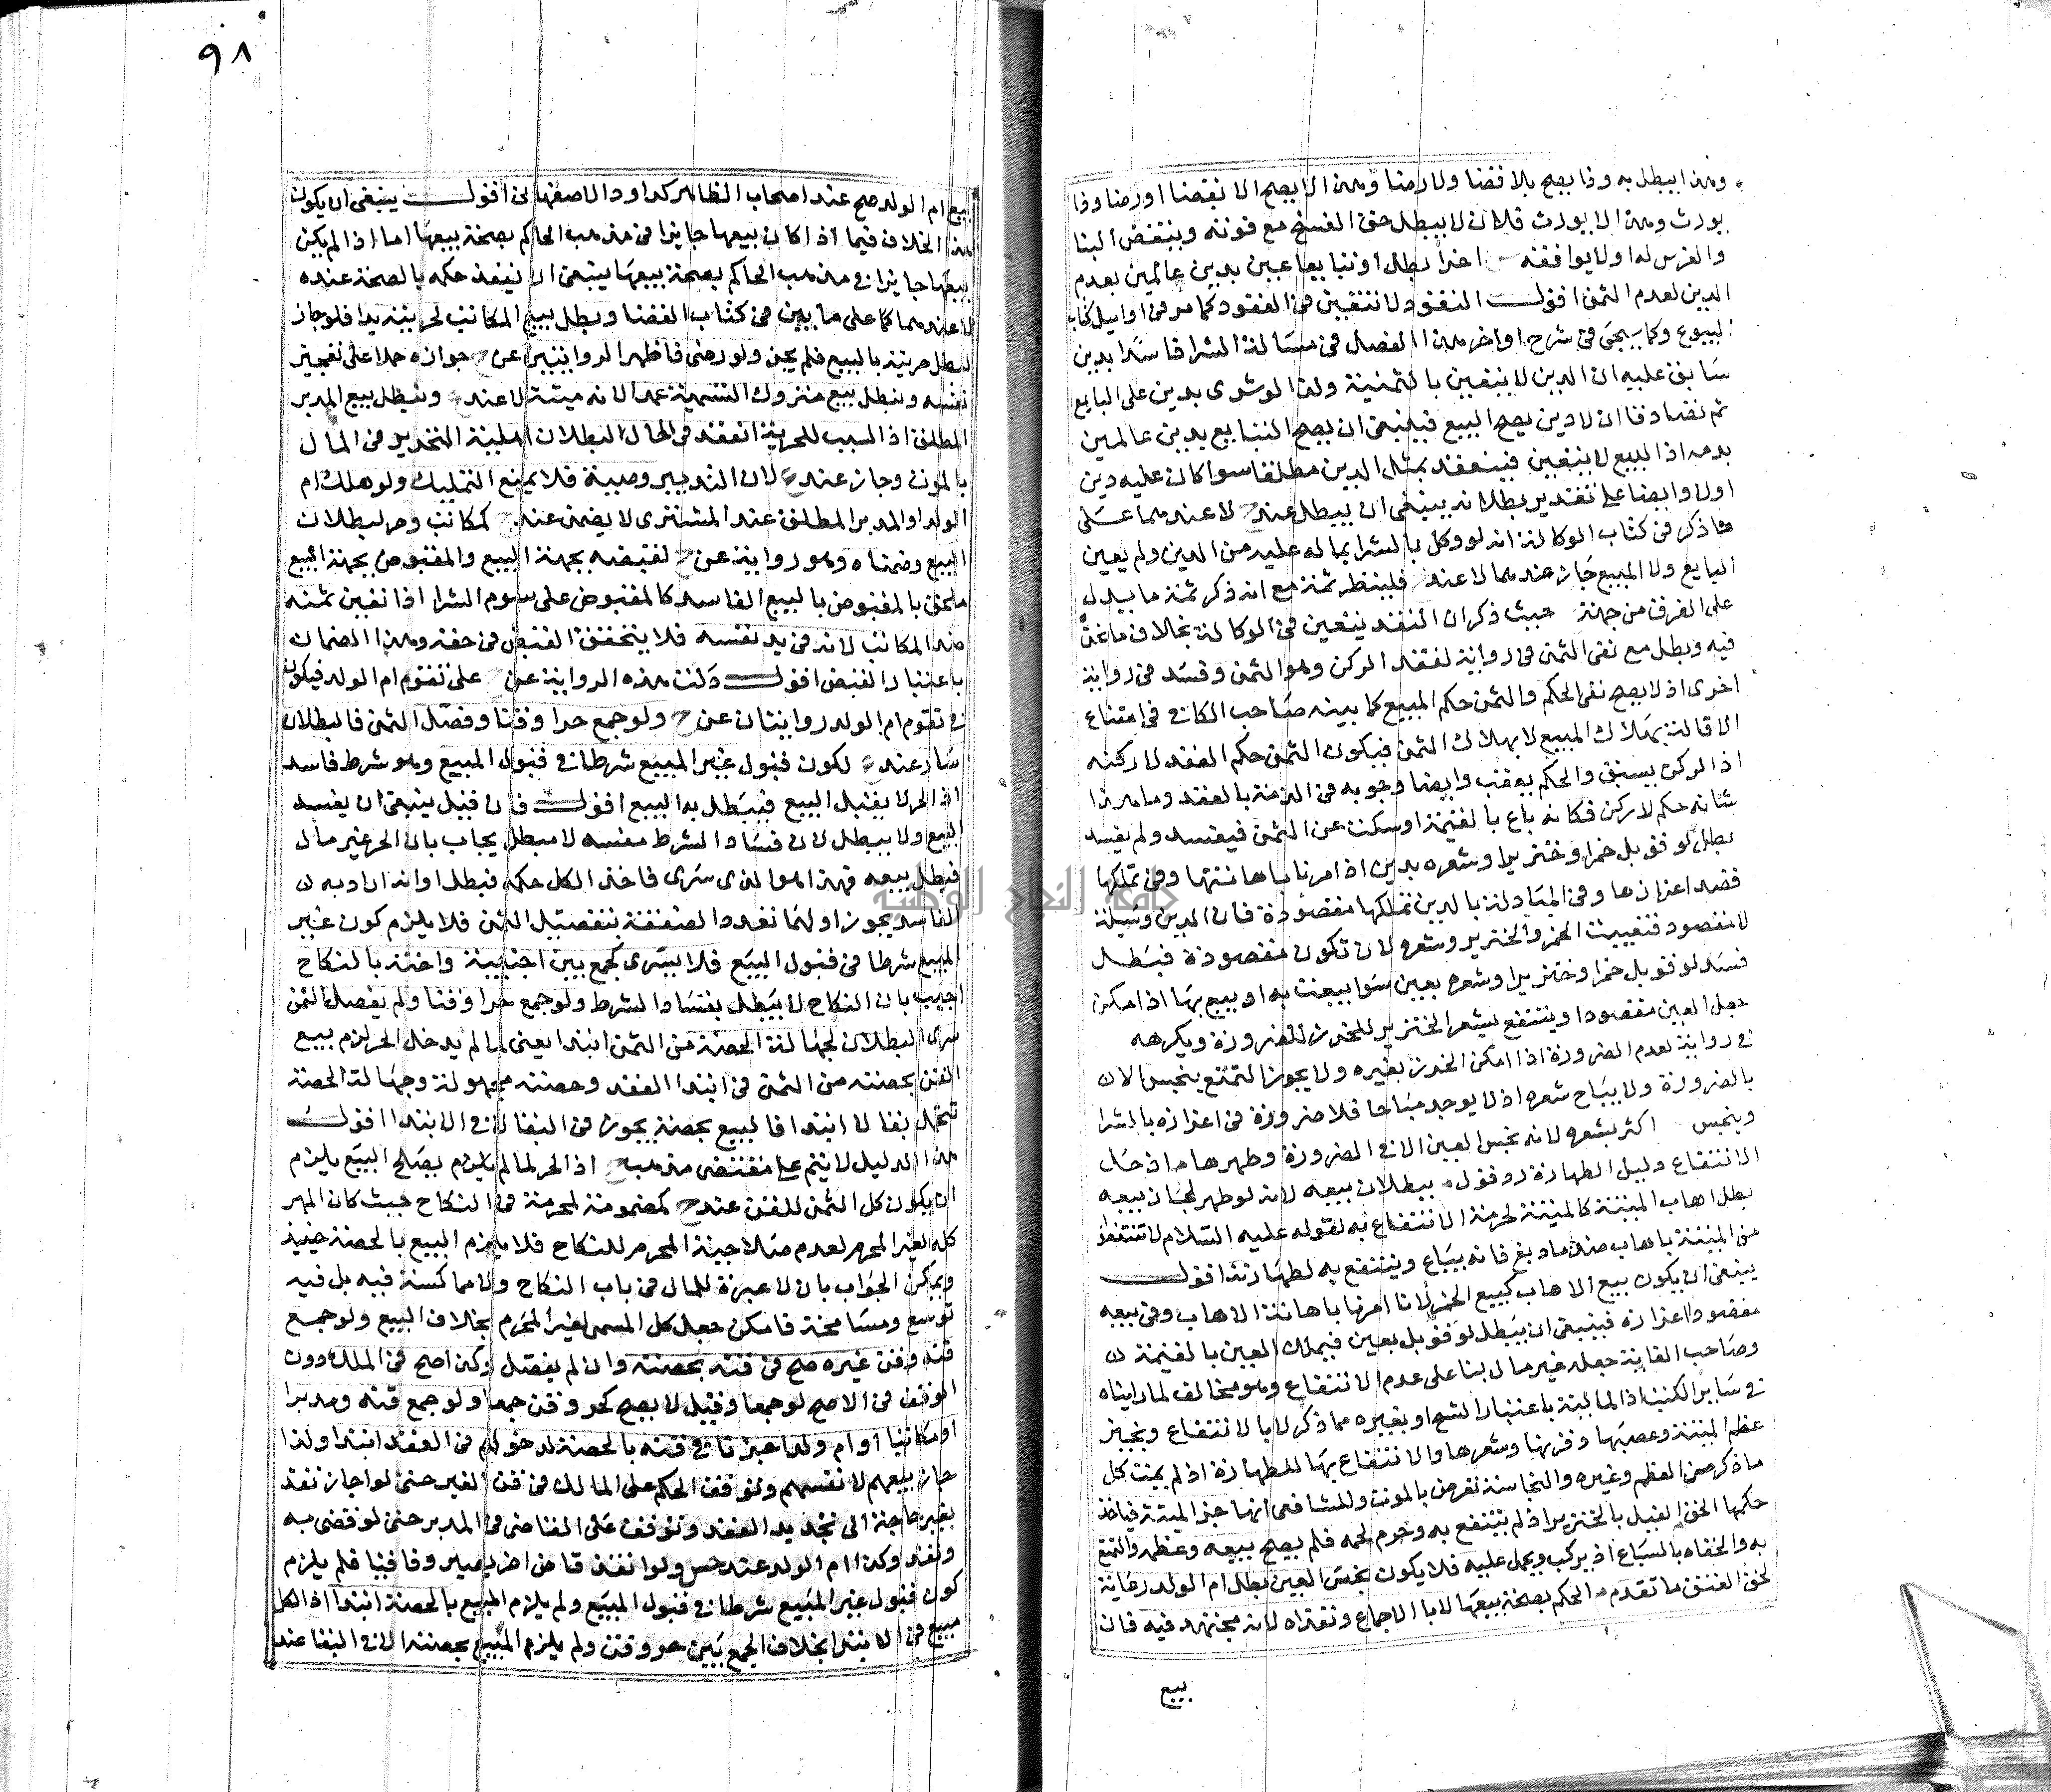 وهذا يبطل به وذا يصح بلا قضا ولا رضا وهذا لا يصح الا بقضا او رضا وذا
يورث وهذا لا يورث فلان لا يبطل حق الفسخ مع فوته وينتقض البنا
والغرس له اولا يوافقه اخذا بطل او تبايعا عبين بدين عالمين بعدم
الدين لعدم الثمن اقول النقود لا تتعين في العقود كما مر في اوايل كتاب
البيوع وكما سيجئ في شرح اواخر هذا الفصل في مسالة الشرا فاسدا بدين
سابق عليه ان الدين لا يتعين بالثمنية ولذا لو شرى بدين على البايع
ثم تصادقا ان لا دين يصح البيع فينبغي ان يصح التبايع بدين عالمين
بعدمه اذ البيع لا يتعين فينعقد بمثل الدين مطلقا سوا كان عليه دين
اولا وايضا على تقدير بطلانه ينبغي ان يبطل عند ح لا عندهما على
ما ذكر في كتاب الوكالة انه لو وكل بالشرا بما له عليه من الدين ولم يعين
البايع ولا المبيع جاز عندهما لا عند فلينظر ثمة مع انه ذكر ثمة ما يدل
على الفرق من جهة حيث ذكر ان النقد يتعين في الوكالة بخلاف ما نحن
فيه وبطل مع نفي الثمن في رواية لفقد الركن وهو الثمن وفسد في رواية
اخرى اذ لا يصح نفي الحكم والثمن حكم المبيع كما بينه صاحب الكافي في امتناع
الاقالة بهلاك المبيع لا بهلاك الثمن فيكون الثمن حكم العقد لا ركنه
اذ الركن يسبق والحكم يعقب وايضا وجوبه في الذمة بالعقد وما هذا
شانه حكم لا ركن فكانه باع بالقيمة او سكت عن الثمن فيفسد ولم يفسد
بطل لو قوبل خمرا وخنزيرا وشعره بدين اذ امرنا باهانتها وفي تملكها
قصدا اعزازها وفي المبادلة بالدين تملكها مقصودة فان الدين وسيلة
لا مقصود فتعينت الخمر والخنزير وشعره لان تكون مقصودة فبطل
فسد لو قوبل خمرا وخنزيرا وشعره بعين سوا بيعت به او بيع بها اذ امكن
جعل العين مقصودا وينتفع بشعر الخنزير للخرز للضرورة ويكره
في رواية لعدم الضرورة اذا امكن الخرز بغيره ولا يجوز التمتع بنجس الا
بالضرورة ولا يباح شعره اذ لا يوجد مباحا فلا ضرورة في اعزازه بالشرا
وينجس اكثر بشعره لانه نجس العين الا في الضرورة وطهرها اذ حل
الانتفاع دليل الطهارة رد قول ببطلان بيعه لانه لو طهر لجاز بيعه
بطل اهاب الميتة كالميتة لحرمة الانتفاع به لقوله عليه السلام لا تنتفعوا
من الميتة باهاب ضد ما دبغ فانه يباع وينتفع به لطهارته اقول
ينبغي ان يكون بيع الاهاب كبيع الخمر لانا امرنا باهانة الاهاب وفي بيعه
مقصودا اعزازه فينبغي ان يبطل لو قوبل بعين فيملك العين بالقيمة
وصاحب الغاية جعله غير مال بنا على عدم الانتفاع وهو مخالف لما راينا
في ساير الكتب اذ المالية باعتبار الشح او بغيره مما ذكر لا بالانتفاع ويجيز
عظم الميتة وعصبها وقرنها وشعرها والانتفاع بها للطهارة اذ لم يمت كل
ما ذكر من العظم وغيره والنجاسة تعرض بالموت وللشافعي انها جزا الميتة فياخذ
حكمها الحق الفيل بالخنزير اذ لم ينتفع به وحرم لحمه فلم يصح بيعه وعظمه والتمتع
به والحقاه بالسباع اذ يركب ويحمل عليه فلا يكون نجس العين بطل ام الولد رعاية
لحق العتق ما تقدم الحكم بصحة بيعها لا بالاجماع ونفذاه لانه مجتهد فيه فان
بيع
٩٨
بيع ام الولد صح عند اصحاب الظاهر كداود الاصفهاني اقول ينبغي ان يكون
هذا الخلاف فيما اذا كان بيعها جايزا في مذهب الحاكم بصحة بيعها اما اذا لم يكن
بيعها جايزا في مذهب الحاكم بصحة بيعها ينبغي ان لا ينفذ حكمه بالصحة عنده
لا عندهما كما على ما يبين في كتاب القضا وبطل بيع المكاتب لحريته يدا فلو جاز
لبطل حريته بالبيع فلم يجز ولو رضي فاظهر الروايتين عن ح جوازه حملا على تعجيز
نفسه وبطل بيع متروك التسمية عمدا لانه ميتة لا عند وبطل بيع المدبر
المطلق اذ السبب للحرية انعقد في الحال لبطلان اهلية التحرير في المال
بالموت وجاز عند لان التدبير وصية فلا يمنع التمليك ولو هلك ام
الولد او المدبر المطلق عند المشتري لا يضمن عند ح كمكاتب وحر لبطلان
البيع وضمناه وهو رواية عن ح لقبضه بجهة البيع والمقبوض بجهة البيع
ملحق بالمقبوض بالبيع الفاسد كالمقبوض على سوم الشرا اذا تعين ثمنه
ضد المكاتب لانه في يد نفسه فلا يتحقق القبض في حقه وهذا الضمان
باعتبار القبض اقول دلت هذه الرواية عن على تقوم ام الولد فيكون
في تقوم ام الولد روايتان عن ح ولو جمع حرا وقنا وفصل الثمن فالبطلان
سار عند لكون قبول غير المبيع شرطا في قبول المبيع وهو شرط فاسد
اذ الحر لا يقبل البيع فيبطل به البيع اقول فان قيل ينبغي ان يفسد
البيع ولا يبطل لان فساد الشرط مفسد لا مبطل يجاب بان الحر غير مال
فبطل بيعه فهذا هو الذي سرى فاخذ الكل حكمه فبطل او انه اراد به
الفاسد يجوز او لهما تعدد الصفقة بتفصيل الثمن فلا يلزم كون غير
المبيع شرطا في قبول البيع فلا يسرى كجمع بين اجنبية واخته بالنكاح
اجيب بان النكاح لا يبطل بفساد الشرط ولو جمع حرا وقنا ولم يفصل الثمن
سرى البطلان لجهالة الحصة من الثمن ابتدا يعني لما لم يدخل الحر لزم بيع
القن بحصته من الثمن في ابتدا العقد وحصته مجهولة وجهالة الحصة
تتحمل بقا لا ابتدا فالبيع بحصة يجوز في البقا لا في الابتدا اقول
هذا الدليل لا يتم على مقتضى مذهب ح اذ الحر لما لم يلزم بصلح البيع يلزم
ان يكون كل الثمن للقن عند ح كمضمومة لمحرمة في النكاح حيث كان المهر
كله لغير المحرم لعدم صلاحية المحرم للنكاح فلا يلزم البيع بالحصة حينيذ
ويمكن الجواب بان لا عبرة للمال في باب النكاح ولا مماكسة فيه بل فيه
توسع ومسامحة فامكن جعل كل المسمى لغير المحرم بخلاف البيع ولو جمع
قنه وقن غيره صح في قنه بحصته وان لم يفصل وكذا صح في الملك دون
الوقف في الاصح لو جمعا وقيل لا يصح كحر وقن جمعا ولو جمع قنه ومدبرا
او مكاتبا او ام ولد اجزنا في قنه بالحصة لدخولهم في العقد ابتدا ولذا
جاز بيعهم لانفسهم وتوقف الحكم على المالك في قن الغير حتى لو اجاز نفذ
بغير حاجة الى تجديد العقد وتوقف على القاضي في المدبر حتى لو قضى به
ونفذ وكذا ام الولد عند حس ولو انفذ قاض اخر يصير وفاقيا فلم يلزم
كون قبول غير المبيع شرطا في قبول المبيع ولم يلزم المبيع بالحصة ابتدا اذ الكل
مبيع في الابتدا بخلاف الجمع بين حر وقن ولم يلزم المبيع بحصته الا في البقا عند
جامعة النجاح الوطنية